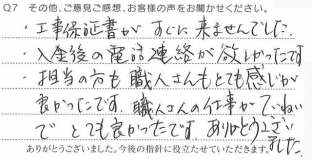 Q7 その他、ご意見ご感想、お客様の声をお聞かせください。
・工事保証書が すぐに 来ませんでした.
・入金後の電話連絡が欲しかったです
・担当の方も 職人さんもとても感じが
良かったです. 職人さんの仕事がていねい
で とても良かったです. ありがとうござい
ました.
ありがとうございました。今後の指針に役立たせていただきます。